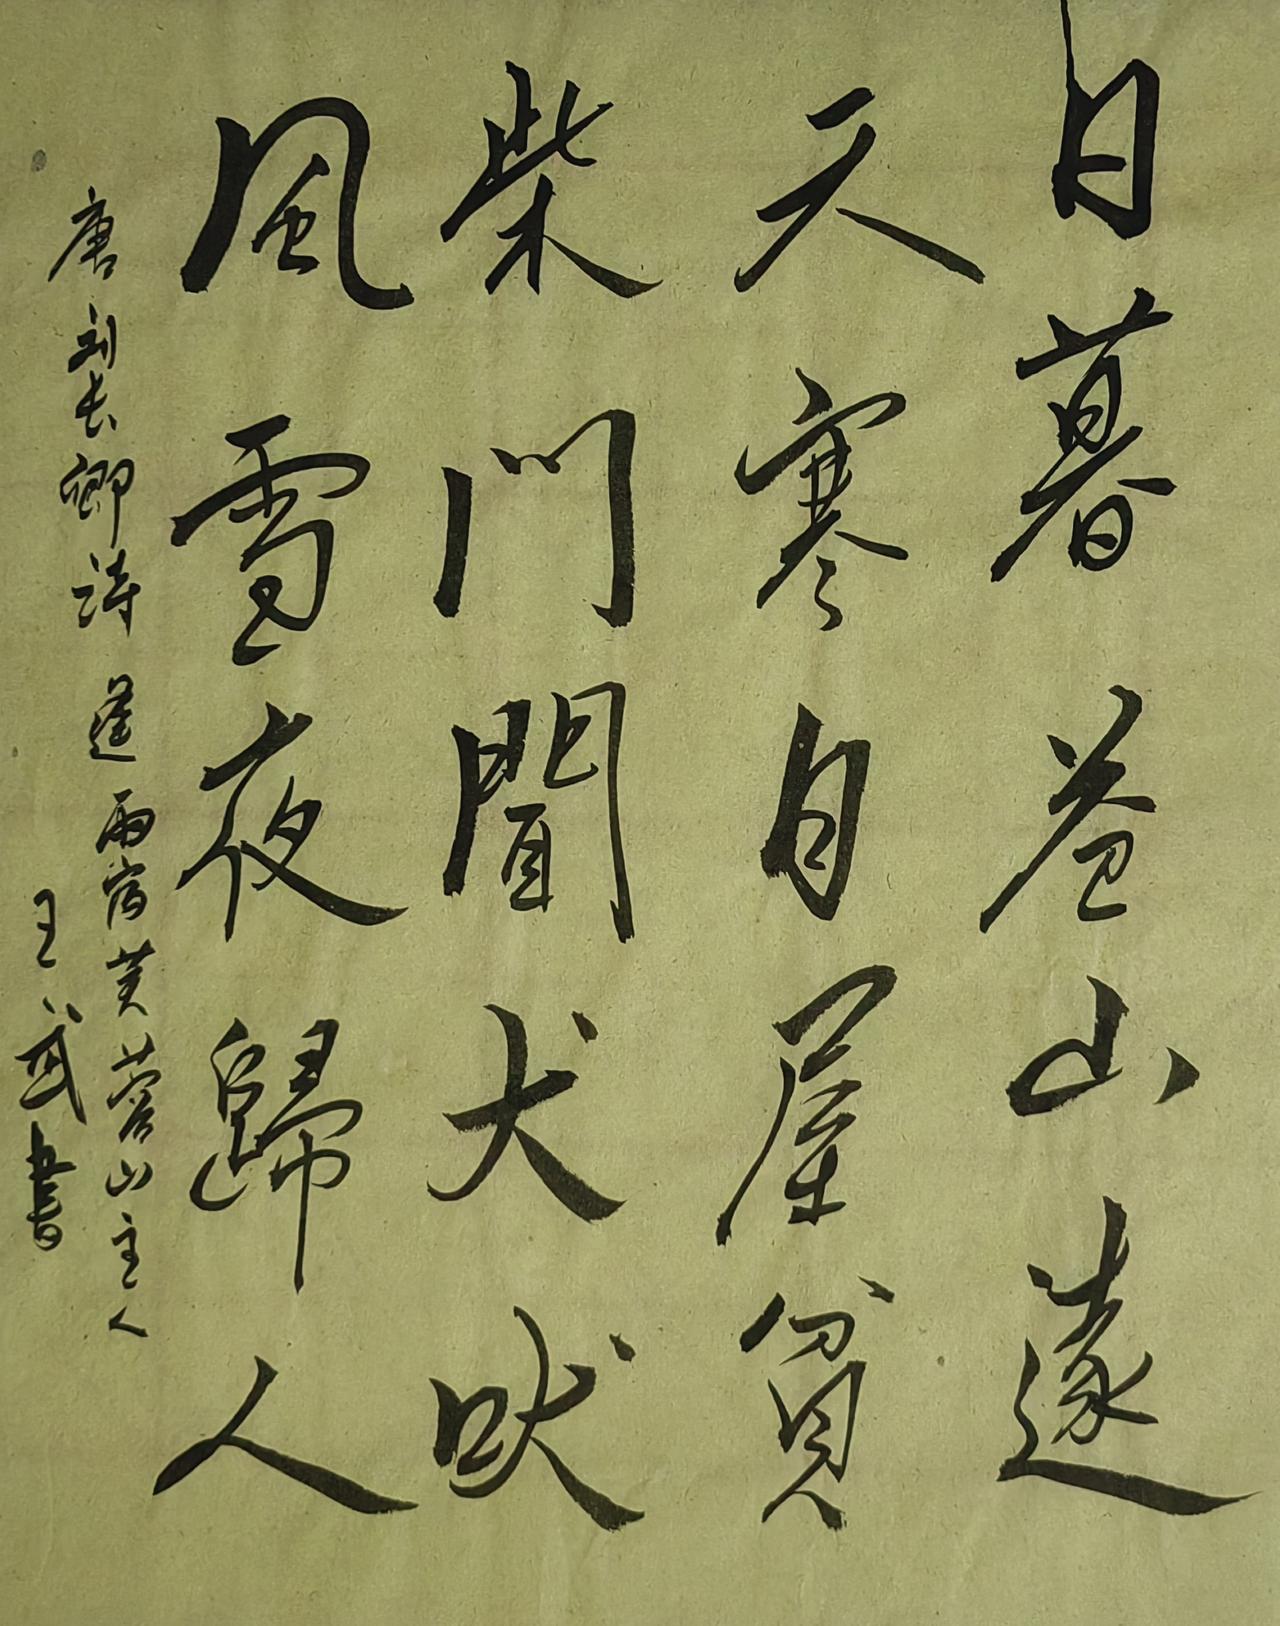 日暮苍山遠
天寒白屋貧
柴門聞犬吠
風雪夜歸人
唐刘长卿诗逢雨宿芙蓉山主人
王武書